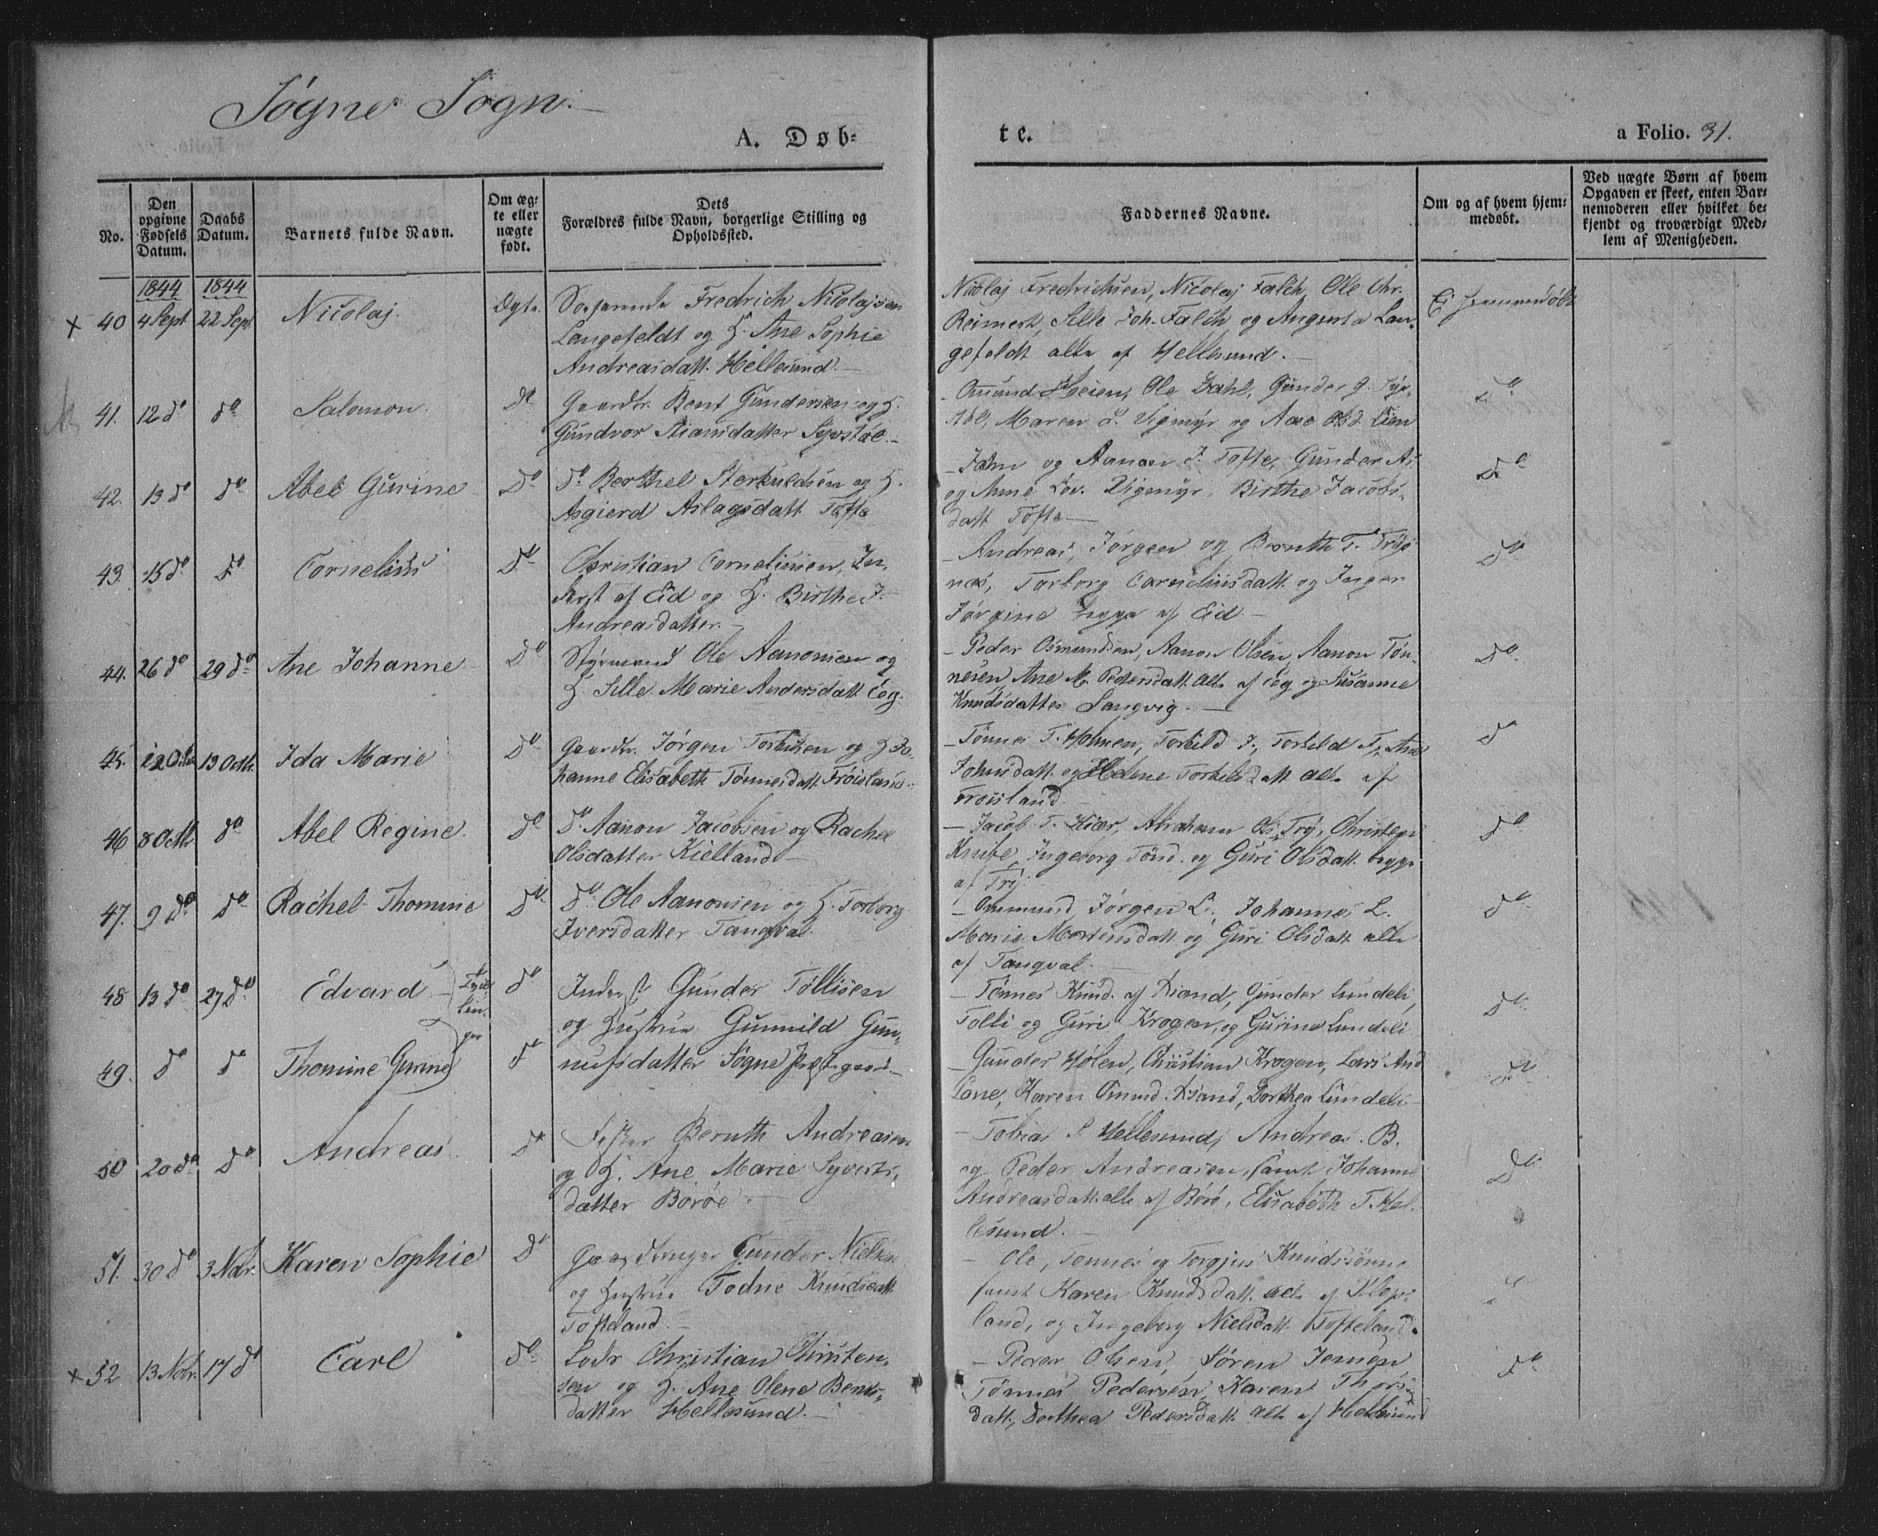 Søgne Sogn.
A. Døb-
te.
a Folio. 31.
No.
Den opgivne Fødsels Datum.
Daabs Datum.
Barnets fulde Navn.
Om ægte eller uægte født.
Dets Forældres fulde Navn, borgerlige Stilling og Opholdssted.
Faddernes Navne.
Om og af hvem hjemmedøbt.
Ved uægte Børn af hvem Opgaven er skeet, enten Barnemoderen eller hvilket bekjendt og troværdigt Medlem af Menigheden.
1844 1844
× 40 4 Sept 22 Sept Nicolaj. Ægte Fredrich Nicolajsen
Langefeldt og H. Ane Sophie
Andreasdatt. Hellesund. —
Nicolaj Fredrichsen, Nicolaj Falch, Ole Chr.
Reimert, Sille Joh. Falch, og Augusta Lan-
gefeldt alle af Hellesund. —
Ei hjemmedøbt
41. 12 do do Salomon. do Gaardbr. Bent Gundersen og H.
Gundvor Stiansdatter Syvstøl. —
Omund Heien, Ole Dahl, Gunder G. Syv-
støl, Maren S. Vigmyr og Olsd. Lien
do
42. 13 do do Abel Gurine do do Berthel Terkuldsen og H.
Asgierd Aslagsdatt. Tofte
— John og Aanon J. Tofte, Gunder As
og Anne Lov. Vigmyr, Birthe Jacobs-
datt Tofte —
do
43. 15 do do Cornelius do Christian Corneliusen, In-
derst af Eid og H. Birthe J.
Andreasdatter. —
— Andreas, Jørgen og Bernth T. Trys-
nes, Torborg Corneliusdatt. og Inger
Jørgine begge af Eid. —
do
44. 26 do 29 do Ane Johanne do Styrmand Ole Aanonsen og
H. Sille Marie Andersdatt. Eeg.
— Peder Osmundsen, Aanon Olsen, Aanon Tøn-
nesen, Ane M. Pedersdatt. alle af Eeg og Susanne
Knudsdatter Langvig. —
do
45. 13 Octbr. Ida Marie do Gaardbr. Jørgen Torkelsen og H Jo-
hanne Elisabeth Tønnesdatt. Frøisland.
— Tønnes T. Holmen, Torkild J., Torkild T., Ane
Johnsdatt. og Helene Torkelsdatt alle af
Frøisland.
do
46 8 Octb. do Abel Regine. do do Aanon Jacobsen og Rachel
Olsdatter Kielland —
— Jacob T. Kiær, Abraham Ols. Try, Christen
Knibe, Ingeborg Tønd. og Guri Olsdatt. begge
af Try
do
47. 9 do do Rachel Thomine do do Ole Aanonsen og H. Torborg
Iversdatter Tangval
— Ommund, Jørgen L., Johannes L.
Maria Mortensdatt og Guri Olsdatt alle
af Tangval. —
do
48 13 do 27 do Edvard — Tvil- do Inderst Gunder Tollisen
lin- og Hustrue Gunnild Gun-
ger
— Tønnes Knud. af Strand, Gunder Lundeli,
Tolli og Guri Krogen, og Gurine Lundeli
do
49. do do Thomine Gurine do nufsdatter Søgne Præstgaard —
— Gunder Hølen, Christian Krogen, Lars And
Lone, Karen Omund. Strand, Dorthea Lundeli —
do
50 20 do do Andreas. do Fisker Bernth Andreasen
og H. Ane Marie Syverts-
datter Borøe. —
— Tobias P Hellesund, Andreas B.
og Peder Andreasen, samt Johanne
Andreasdatt. alle af Borø, Elisabeth T. Hel-
lesund. —
do
51. 30 do 3 Nobr. Karen Sophie do Gaardbruger Gunder Nielsen
og Hustrue Todne Knudsdatt
Toftland. —
— Ole, Tønnes og Torgjus Knudssønner
samt Karen Knudsdatt alle af Klep-
land, og Ingeborg Nielsdatt. Tofteland.
× 52 13 Nobr. 17 do Carl do Lods Christian Christen-
sen og H. Ane Olene Bents-
datter Hellesund. —
— Peder Olsen, Søren Jensen
Tønnes Pedersen, Karen Thors-
datt, Dorthea Pedersdatt. alle af Hellesund
do